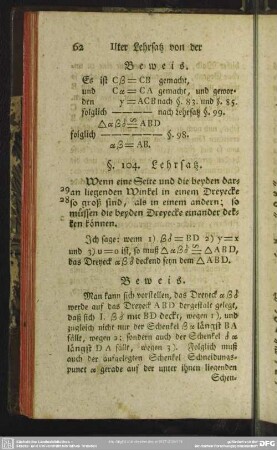 62 IIter Lehrsatz von der
Beweis.
Es ist Cβ = CB gemacht,
und Cα = CA gemacht, und gewor-
den y = ACB nach §. 83. und §. 85.
folglich — — — — nach Lehrsatz §. 99.
△ αβδ ≅ ABD
folglich — — — — — §. 98.
αβ = AB.
§. 104. Lehrsatz.
Wenn eine Seite und die beyden dar-
29 an liegenden Winkel in einem Dreyecke
28 so groß sind, als in einem andern; so
müssen die beyden Dreyecke einander dek-
ken können.
Ich sage: wenn 1) βδ = BD 2) y = x
und 3) u = o ist, so muß △ αβδ ≅ △ ABD,
das Dreyeck αβδ deckend seyn dem △ ABD.
Beweis.
Man kann sich vorstellen, das Dreyeck αβδ
werde auf das Dreyeck ABD dergestalt gelegt,
daß sich 1. βδ mit BD decke, wegen 1), und
zugleich nicht nur der Schenkel βα längst BA
falle, wegen 2; sondern auch der Schenkel δα
längst DA falle, wegen 3). Folglich muß
auch der aufgelegten Schenkel Schneidungs-
punct α gerade auf der unter ihnen liegenden
Schen-